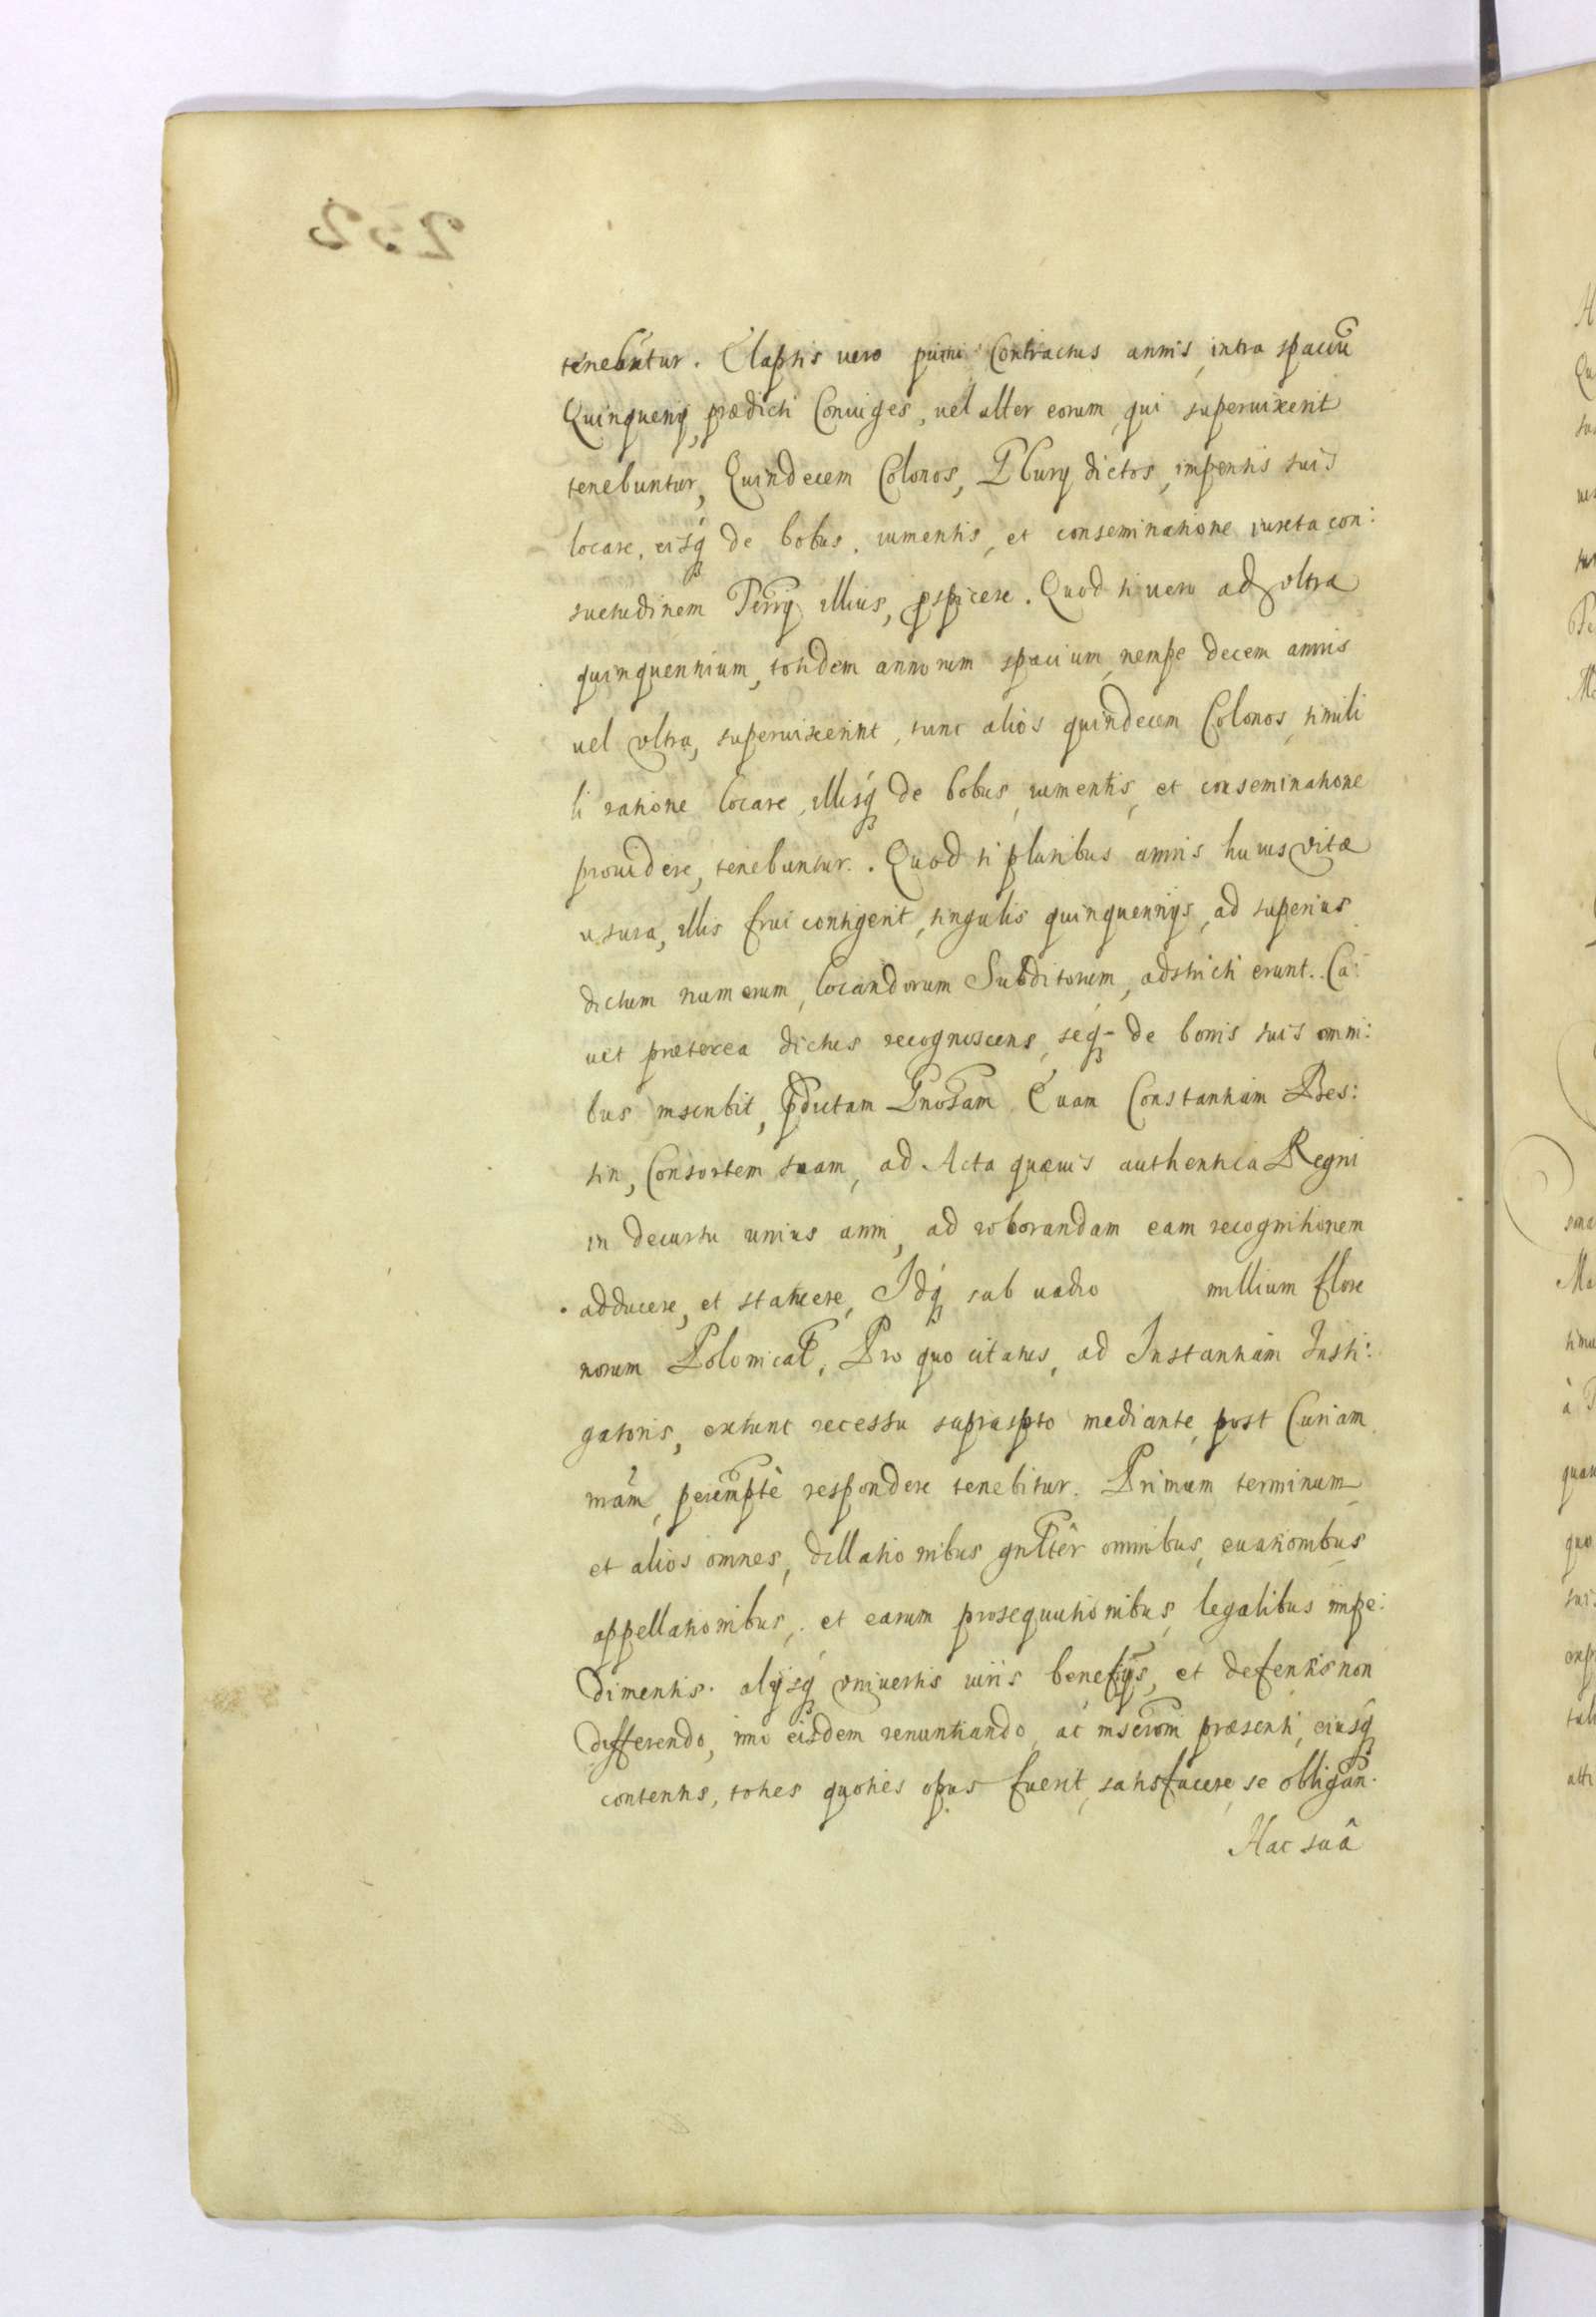 tenebũtur. Elapsis vero primi Contractus annis, intra spaciũ
Quinquenij, prædicti Coniuges, uel alter eorum, qui superuixerit
tenebuntur, Quindecem Colonos, Pbury dictos, impensis suis
locare, eisq́ de bobus, iumentis, et conseminatione iuxta con:
suetudinem Terrij illius, pspicere. Quod si uero ad vltra
quinquennium, totidem annorum spacium, nempe decem annis
uel vltra, superuixerint, tunc alios quindecem Colonos, simili
li ratione locare, illisq́ de bobus, iumentis, et conseminatione
prouidere, tenebuntur. Quod si pluribus annis huius vitæ
usura, illis frui contigerit, singulis quinquennijs, ad superius
dictum numerum, locandorum Subditorum, adstricti erunt. Ca:
uet præterea dictus recognoscens, seq́ de bonis suis omni:
bus inscribit, pdictam Gnosam Euam Constantiam Bes:
sin, Consortem suam, ad Acta quæuis authentica Regni
in decursu unius anni, ad roborandam eam recognitionem
adducere, et statuere, Idq́ sub uadio millium flore
norum Polonical, Pro quo citatus, ad Instantiam Insti:
gatoris, extunc recessu suprascpto mediante, post Curiam
mãm, peremptè respondere tenebitur. Primum terminum
et alios omnes, dillationibus gnlter omnibus, euasionibus
appellationibus, et earum prosequutionibus, legalibus impe:
dimentis. alijsq́ vniuersis iuris benefijs, et defensis non
differendo, imo eisdem renuntiando, ac inscroni præsenti, eiusq́
contentis, toties quoties opus fuerit, satisfacere, se obligan.
Hac suâ